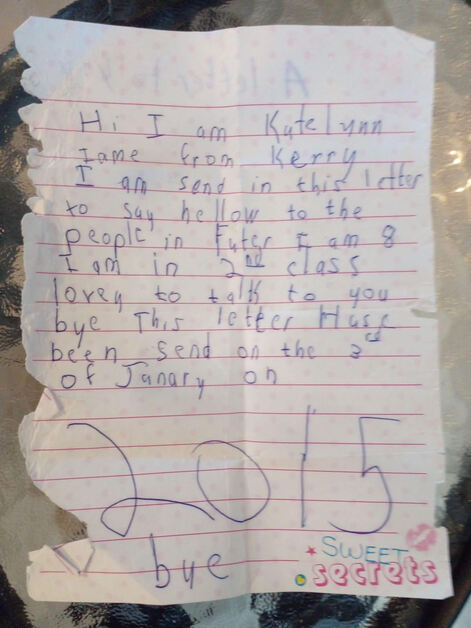 Hi I am Katelynn
Iame from Kerry
I am send in this letter
to say hellow to the
people in Futer I am 8
I am in 2nd class
lovey to talk to you
bye This letter Hase
been send on the 3rd
of Janary on
2015
bye
SWEET
secrets